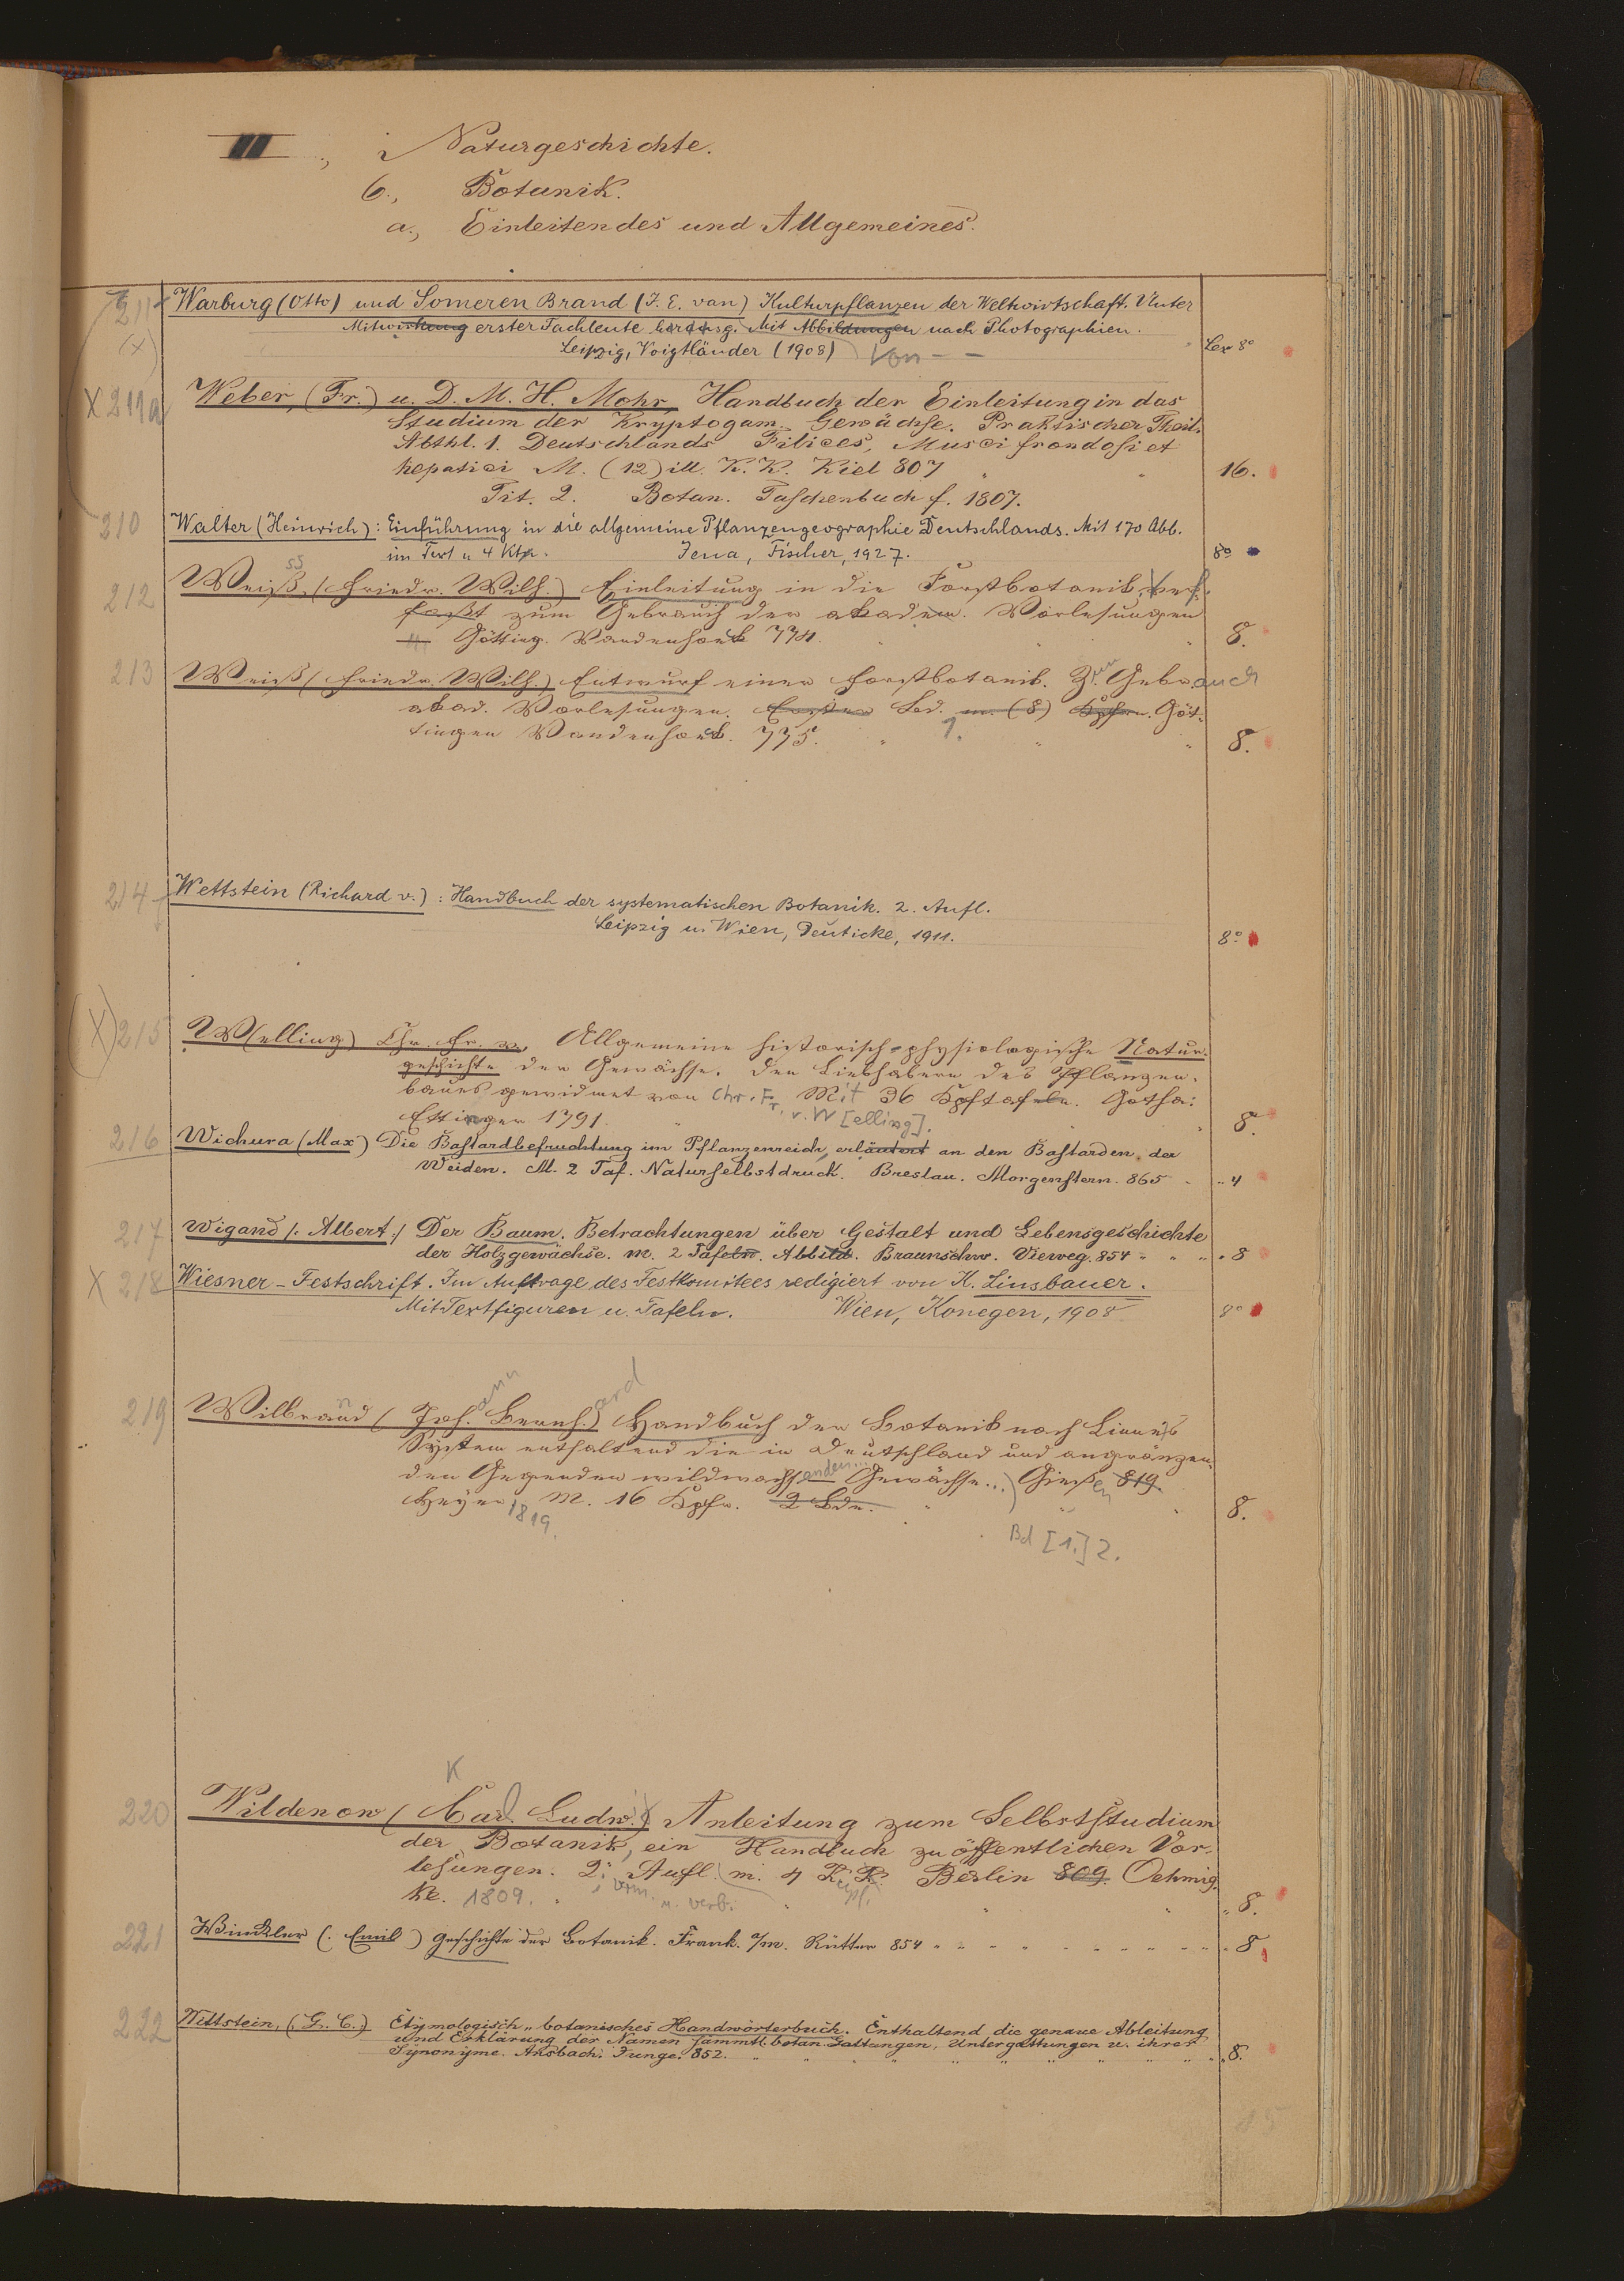 III., Naturgeschichte.
6., Botanik.
a., Einleitendes und Allgemeines.
211 Warburg (Otto) und Someren Brand (J. E. van) Kulturpflanzen der Weltwirtschaft. Unter
(X) Mitwirkung erster Fachleute herausg. Mit Abbildungen nach Photographien.
Leipzig, Voigtländer (1908) Von - - Lex 8°
X 211a Weber, (Fr.) u. D. M. H. Mohr, Handbuch der Einleitung in das
Studium der Kryptogam. Gewächse. Praktischer Theil.
Abthl. 1. Deutschlands Filices, Musci frondosi et
hepatici M. (12) ill. K. K. Kiel 807 16.
Tit. 2. Botan. Taschenbuch f. 1807.
210 Walter (Heinrich): Einführung in die allgemeine Pflanzengeographie Deutschlands. Mit 170 Abb.
im Text u 4 Ktn. Jena, Fischer, 1927. 8°
212 Weiß, (Friedr. Wilh.) Einleitung in die Forstbotanik, verf-
ss
faßt zum Gebrauch der akadem. Vorlesungen
Götting. Vandenhoek 774. 8.
213 Weiß (Friedr. Wilh.) Entwurf einer Forstbotanik. Zum Gebrauch
akad. Vorlesungen. Erster Bd. m. (8) Kpfrn. Göt-
tingen Vandenhoek. 775. 1. 8.
214 Wettstein (Richard v.): Handbuch der systematischen Botanik. 2. Aufl.
Leipzig u. Wien, Deuticke, 1911. 8°
(X) 215 W(elling) Chr. Fr. v. Allgemeine historisch-physiologische Natur-
geschichte der Gewächse. Den Liebhabern des Pflanzen-
baues gewidmet von Chr. Fr. v. W[elling]. Mit 36 Kpftafeln. Gotha:
Ettinger 1791. 8.
216 Wichura (Max) Die Bastardbefruchtung im Pflanzenreich, erläutert an den Bastarden der
Weiden. M. 2 Taf. Naturselbstdruck. Breslau. Morgenstern. 865 4
217 Wigand /: Albert :/ Der Baum. Betrachtungen über Gestalt und Lebensgeschichte
der Holzgewächse. m. 2 Tafeln. Abbild. Braunschw. Vieweg. 854 8
X 218 Wiesner-Festschrift. Im Auftrage des Festkomitees redigiert von K. Linsbauer.
Mit Textfiguren u. Tafeln. Wien, Konegen, 1908 8°
219 Wilbrand (Joh.ann Bernh.ard) Handbuch der Botanik nach Linné's
System enthaltend die in Deutschland und angränzen-
den Gegenden wildwachsenden Gewächse...) Gießen 819.
Heyer 1819. M. 16 Kpfr. 2 Bde. 8.
Bd [1.] 2.
K
220 Wildenow (Carl Ludw.) Anleitung zum Selbststudium
der Botanik, ein Handbuch zu öffentlichen Vor-
lesungen. 2. Aufl. m. 4 K. K. Berlin 809. Oehmig-
ke. 1809. verm. u. verb. 8.
221 Winckler (: Emil) Geschichte der Botanik. Frank. a/m. Rütten 854 8
222 Wittstein, (G. C.) Etymologisch-botanisches Handwörterbuch. Enthaltend die genaue Ableitung
und Erklärung der Namen sämmtl. botan. Gattungen, Untergattungen u. ihrer
Synonyme. Ansbach. Junge. 852. 8.